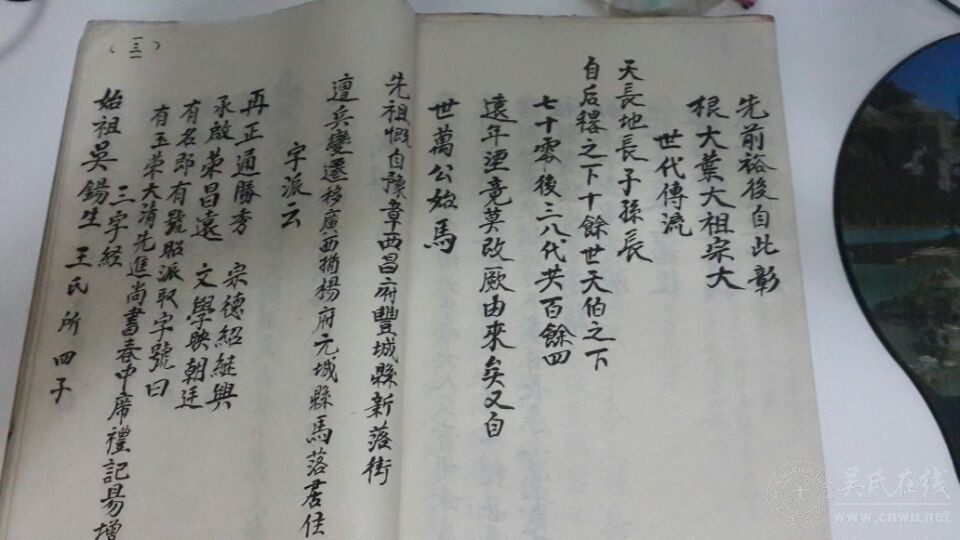 先前裕後自此彰
根大葉大祖宗大
世代傳流
天長地長子孫長
自后稷之下十餘世天伯之下
七十零後三八代共百餘四
遠年湮竟莫改厥由來矣又自
世萬公始馬
先祖慨自豫章西昌府豐城縣新落街
遭兵變遷移廣西猶楊府元城縣馬落居住
字派云
再正通勝秀 宗德紹繼興
承啟榮昌遠 文學映朝廷
有名即有號照派取字號曰
有玉荣大清先進尚書春中席禮記易增
三字经
始祖吳錫生 王氏所四子
(一三一)
吴氏在线
www.cnwu.net